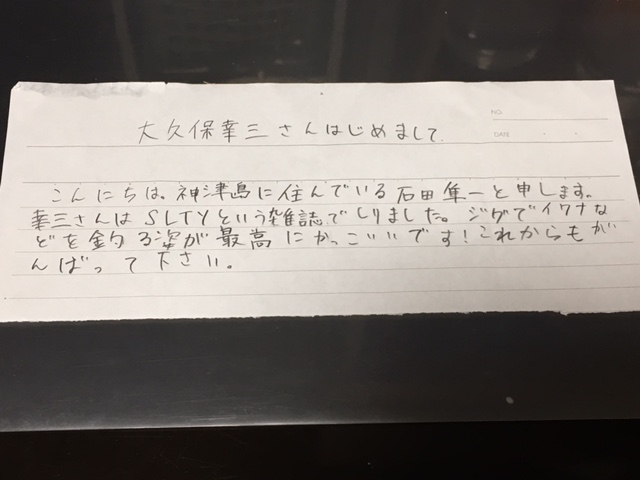 NO.
DATE . .
大久保幸三さんはじめまして.
こんにちは。神津島に住んでいる石田隼一と申します。
幸三さんはSLTYという雑誌でしりました。ジグでイワナな
どを釣る姿が最高にかっこいいです!これからもが
んばって下さい。